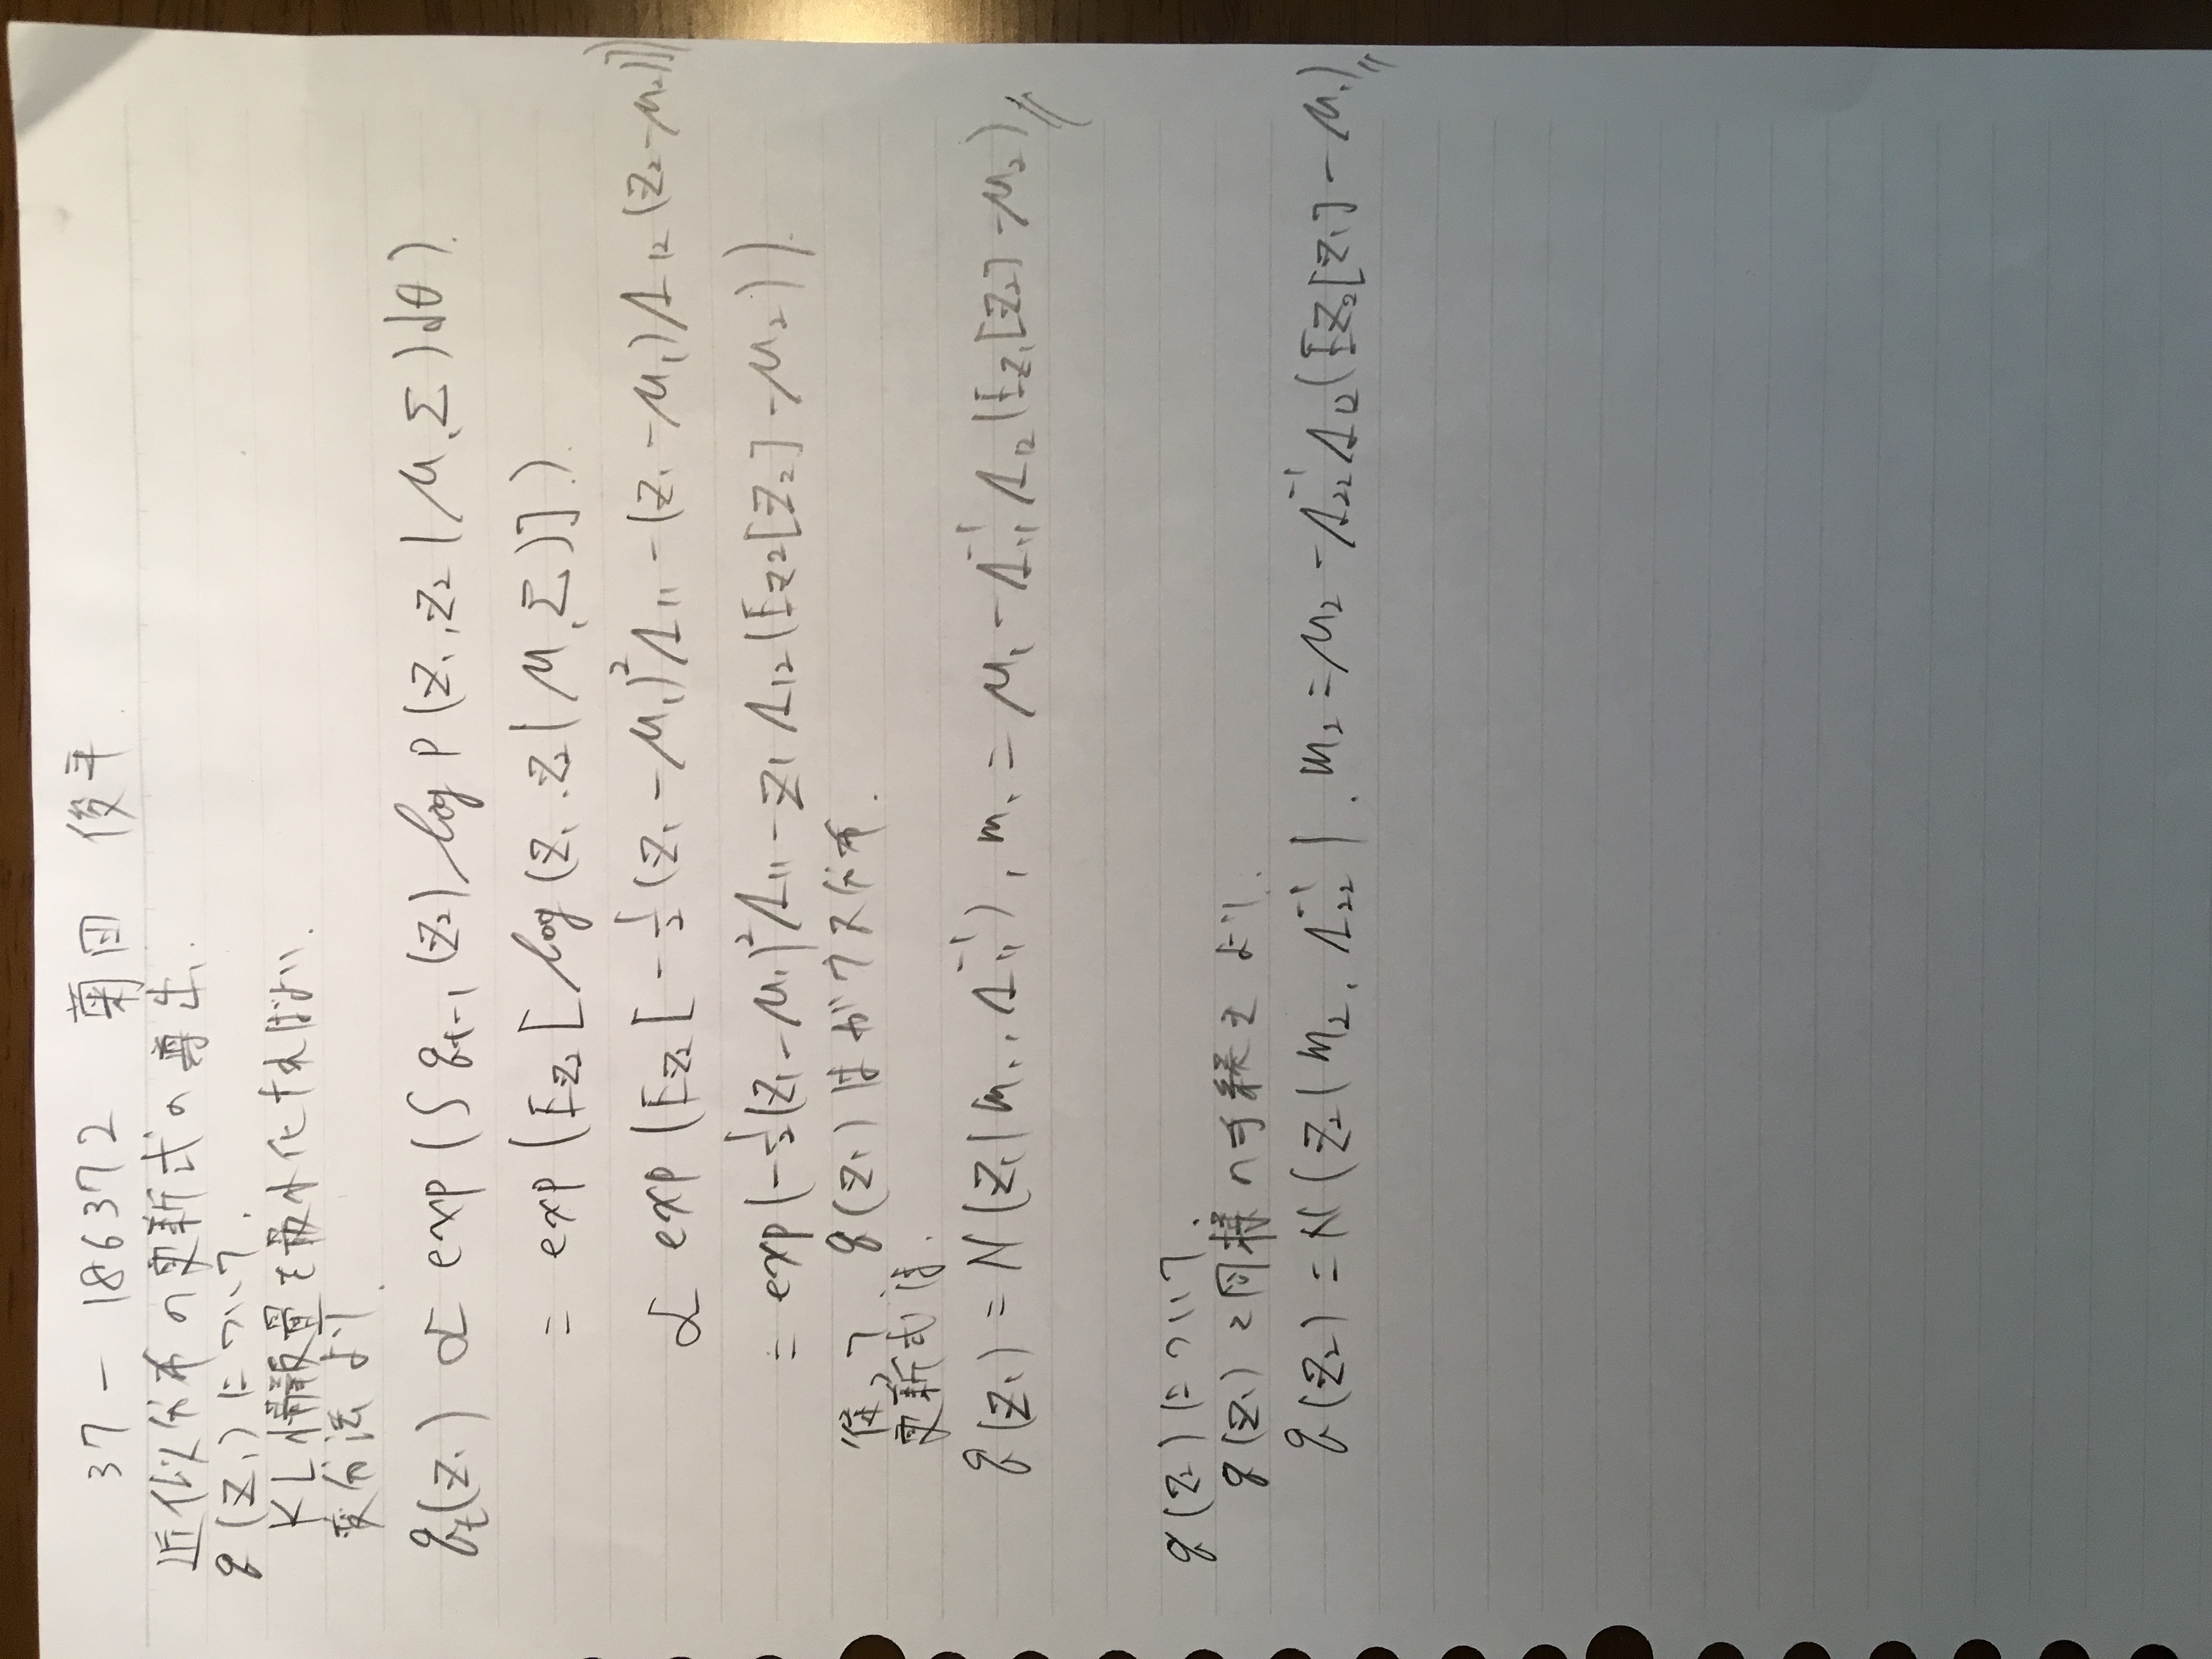 37 - 186372 菊田 俊平
近似分布の更新式の導出.
q(z₁)について.
KL情報量を最小化すればよい.
変分法より.
qₜ(z₁) ∝ exp(∫qₜ₋₁(z₂) log P(z₁,z₂|μ,Σ)dθ).
= exp(E_z₂[log(z₁,z₂|μ,Σ)]).
∝ exp(E_z₂[-1/2(z₁-μ₁)²Λ₁₁-(z₁-μ₁)Λ₁₂(z₂-μ₂)])
= exp(-1/2(z₁-μ₁)²Λ₁₁-z₁Λ₁₂(E_z₂[z₂]-μ₂)).
従って. q(z₁)はガウス分布.
更新式は.
q(z₁)=N(z₁|m₁,Λ₁₁⁻¹), m₁=μ₁-Λ₁₁⁻¹Λ₁₂(E_z₁[z₂]-μ₂)〃
q(z₂)について.
q(z₁)と同様の手続きより.
q(z₂)=N(z₂|m₂,Λ₂₂⁻¹). m₂=μ₂-Λ₂₂⁻¹Λ₁₂(E_z₂[z₁]-μ₁)〃